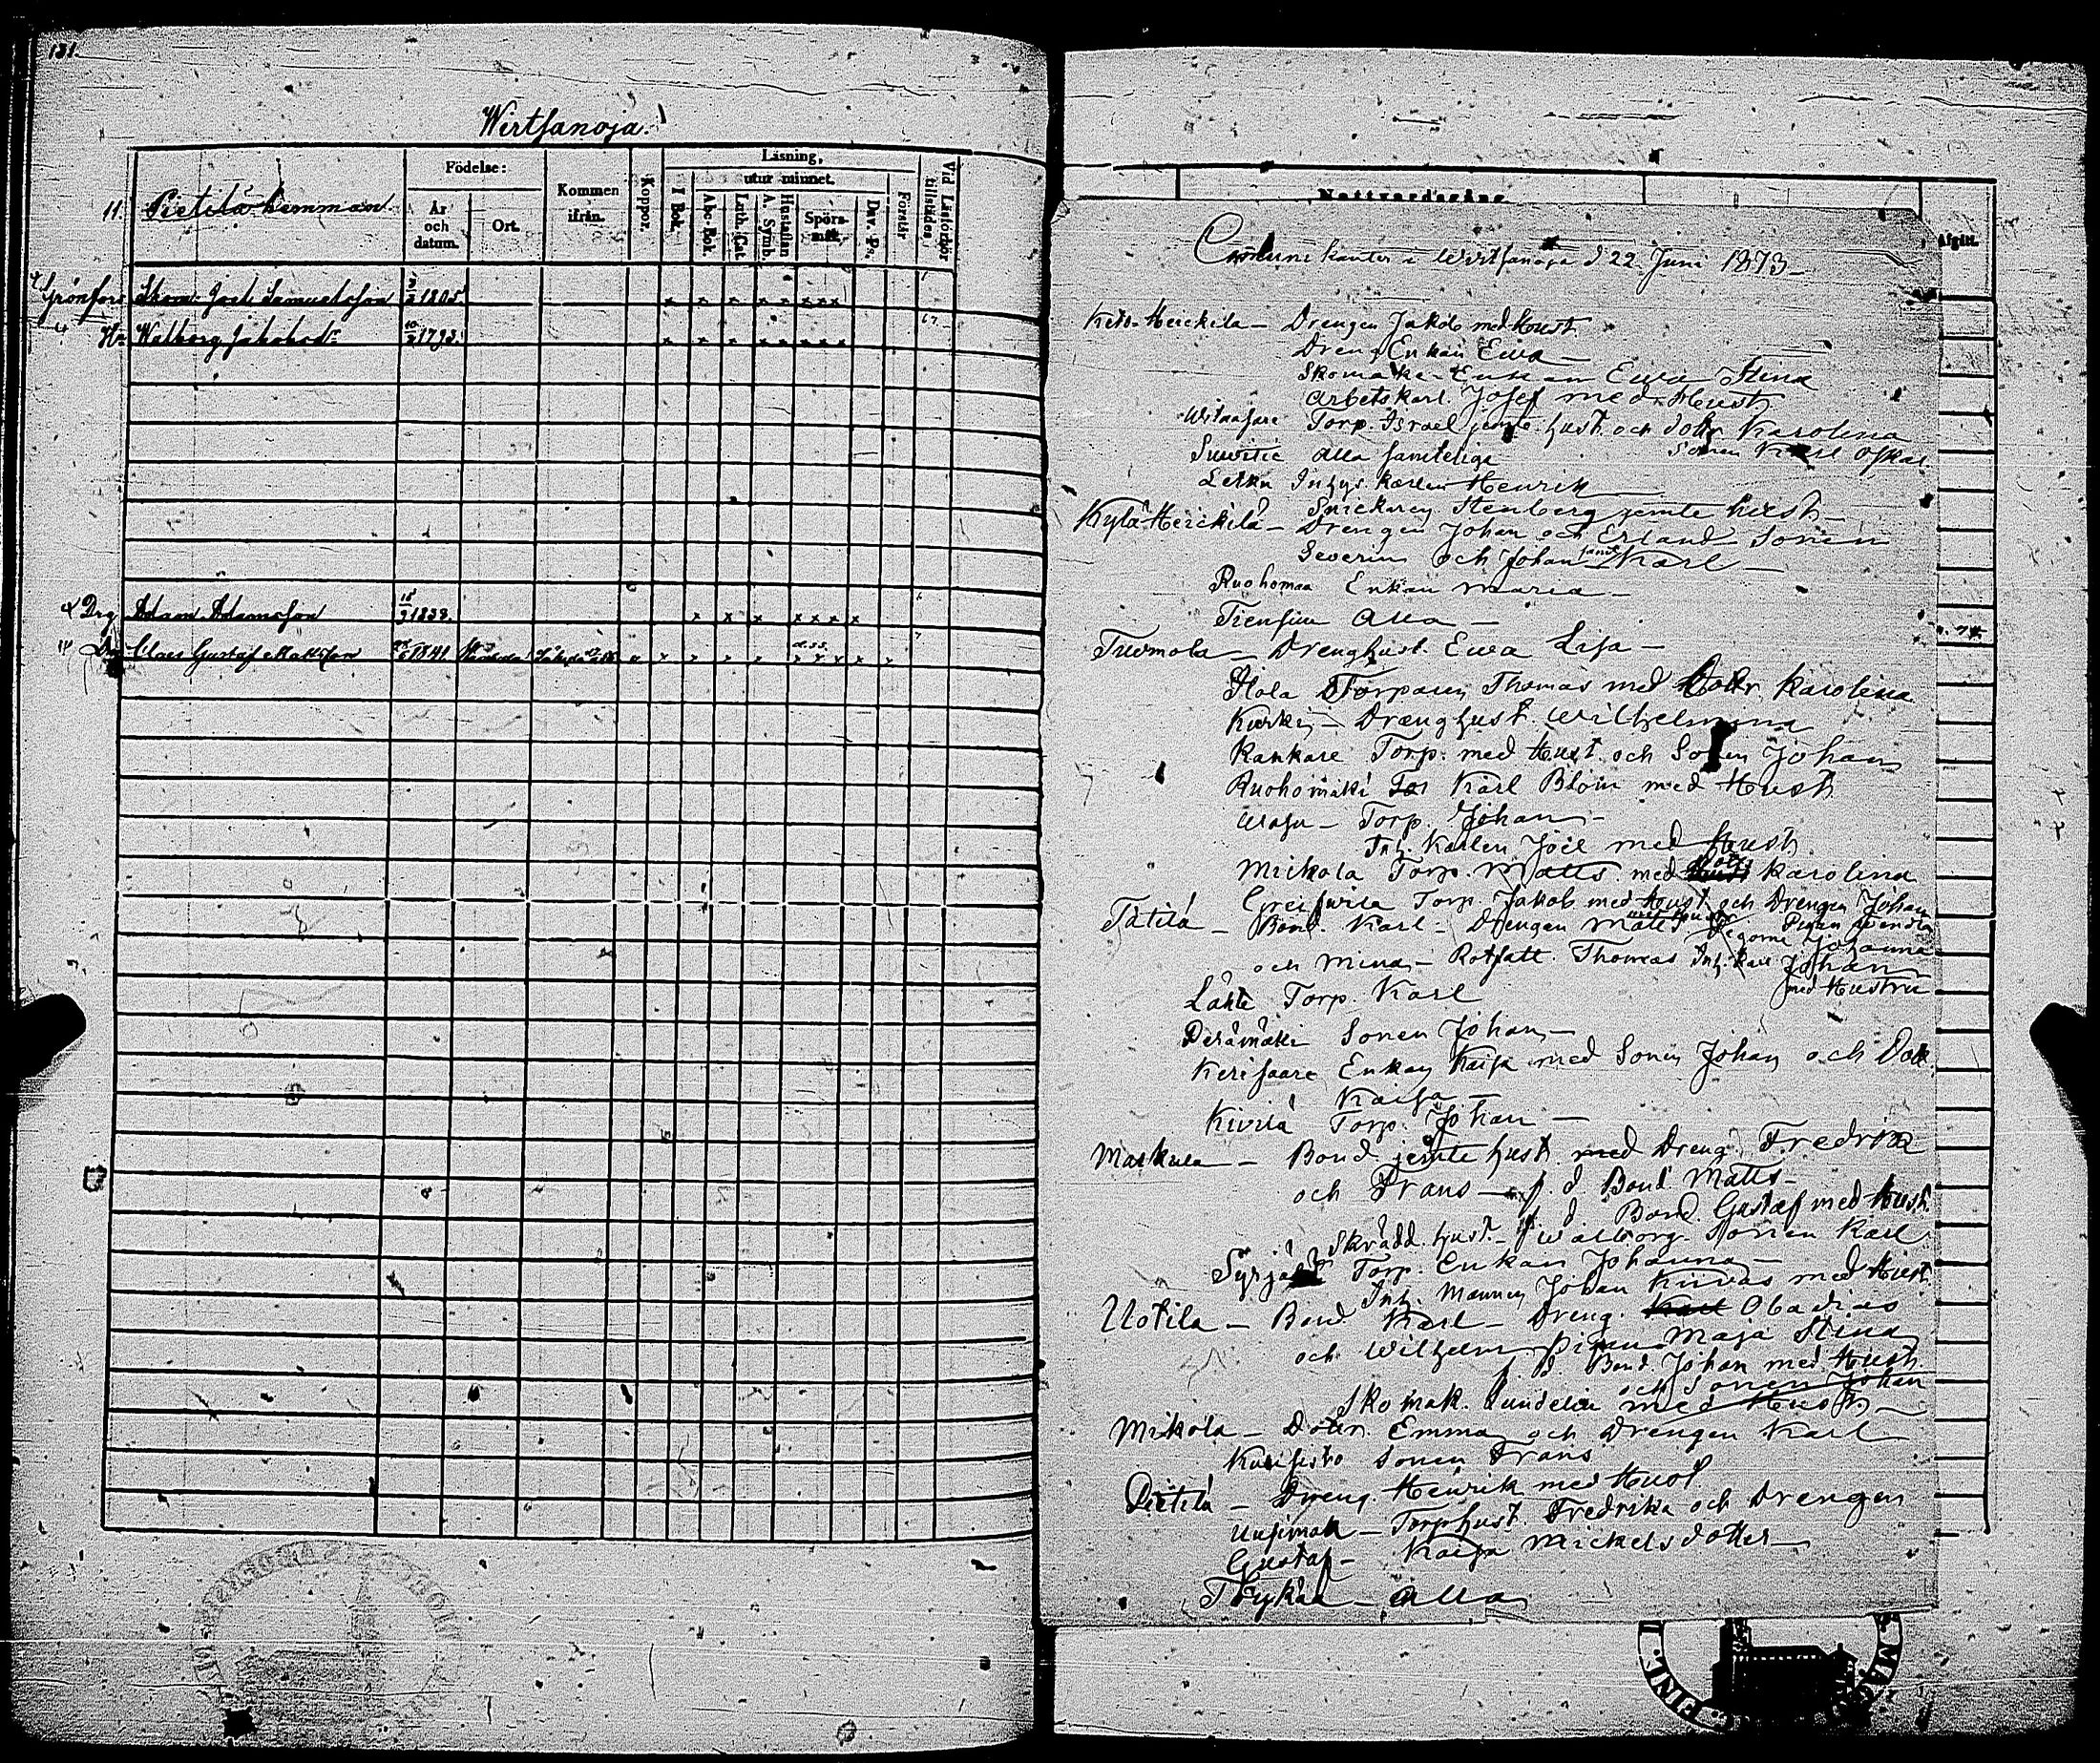 131.
Wirtsanoja.
11. Pietilä hemman.
Födelse:
År och datum.
Ort.
Kommen ifrån.
Koppor.
Läsning,
I Bok.
utur minnet.
Abc-Bok.
Luth. Cat
A. Symb.
Hustaflan
Spörsmål.
Dav. Ps.
Förstår
Vid Läsförhör tillstädes
Grönfors Skom. Joel Samuelsson 1805.
Hu Walborg Jakobsdr 1793.
Drg Adam Adamsson 1838.
Drg Claes Gustaf Mattsson 1841.
Nattvardsgång
Afgått.
Communikanter i Wirtsanoja d 22 Juni 1873 –
Keto-Heickilä – Drengen Jakob med Hust.
Dreng Enkan Ewa –
Skomakare Enkan Ewa Stina
Arbetskarl Josef med Hust.
Torp. Israel jemte hust. och Dottr Karolina
Sonen Karl Oskar
Alla samteliga
Inhys. Karlen Henrik –
Snickaren Stenberg jemte hust –
Kylä-Heickilä – Drengen Johan och Erland Sonen
Severin och Johan samt Karl –
Ruohomaa Enkan Maria –
Alla –
Tuomola – Drenghust. Ewa Lisa –
Torparen Thomas med Dottr Karolina
Kurki – Drenghust. Wilhelmina
Kankare Torp. med Hust. och Sonen Johan
Ruohomäki Karl Blom med Hust.
Torp. Johan –
Inh. Karlen Joel med Hust
Mickola Torp. Matts med Dottr Karolina
Torp Jakob med Hust och Drengen Johan
Tätilä – Bond. Karl – Drengen Matts Pigan
och Mina – Rotfatt. Thomas Inh. Karl Johan
med Hustru
Torp. Karl
Perämäki Sonen Johan –
Kerisaare Enkan Kaisa med Sonen Johan och Dottr
Kaisa –
Kivilä Torp. Johan –
Markula – Bond jemte hust. med Dreng Fredrik
och Frans – f. d Bond Matts –
f. d. Bond. Gustaf med Hust.
Skrädd. hust. – Walborg. Sonen Karl
Syrjä Torp. Enkan Johanna –
Inh. Mannen Johan med Hust.
Uotila – Bond Karl – Dreng. Karl Obadias
och Wilhelm Pigan Maja Stina
f. d. Bond Johan med Hust.
och Sonen Johan
Skomak. Lundelin med Hust. –
Mikola – Dottr. Emma och Drengen Karl
Sonen Frans
Pietilä – Dreng. Henrik med Hust.
Torphust. Fredrika och Drengen
Gustaf – Kaisa Mickelsdotter –
Alla